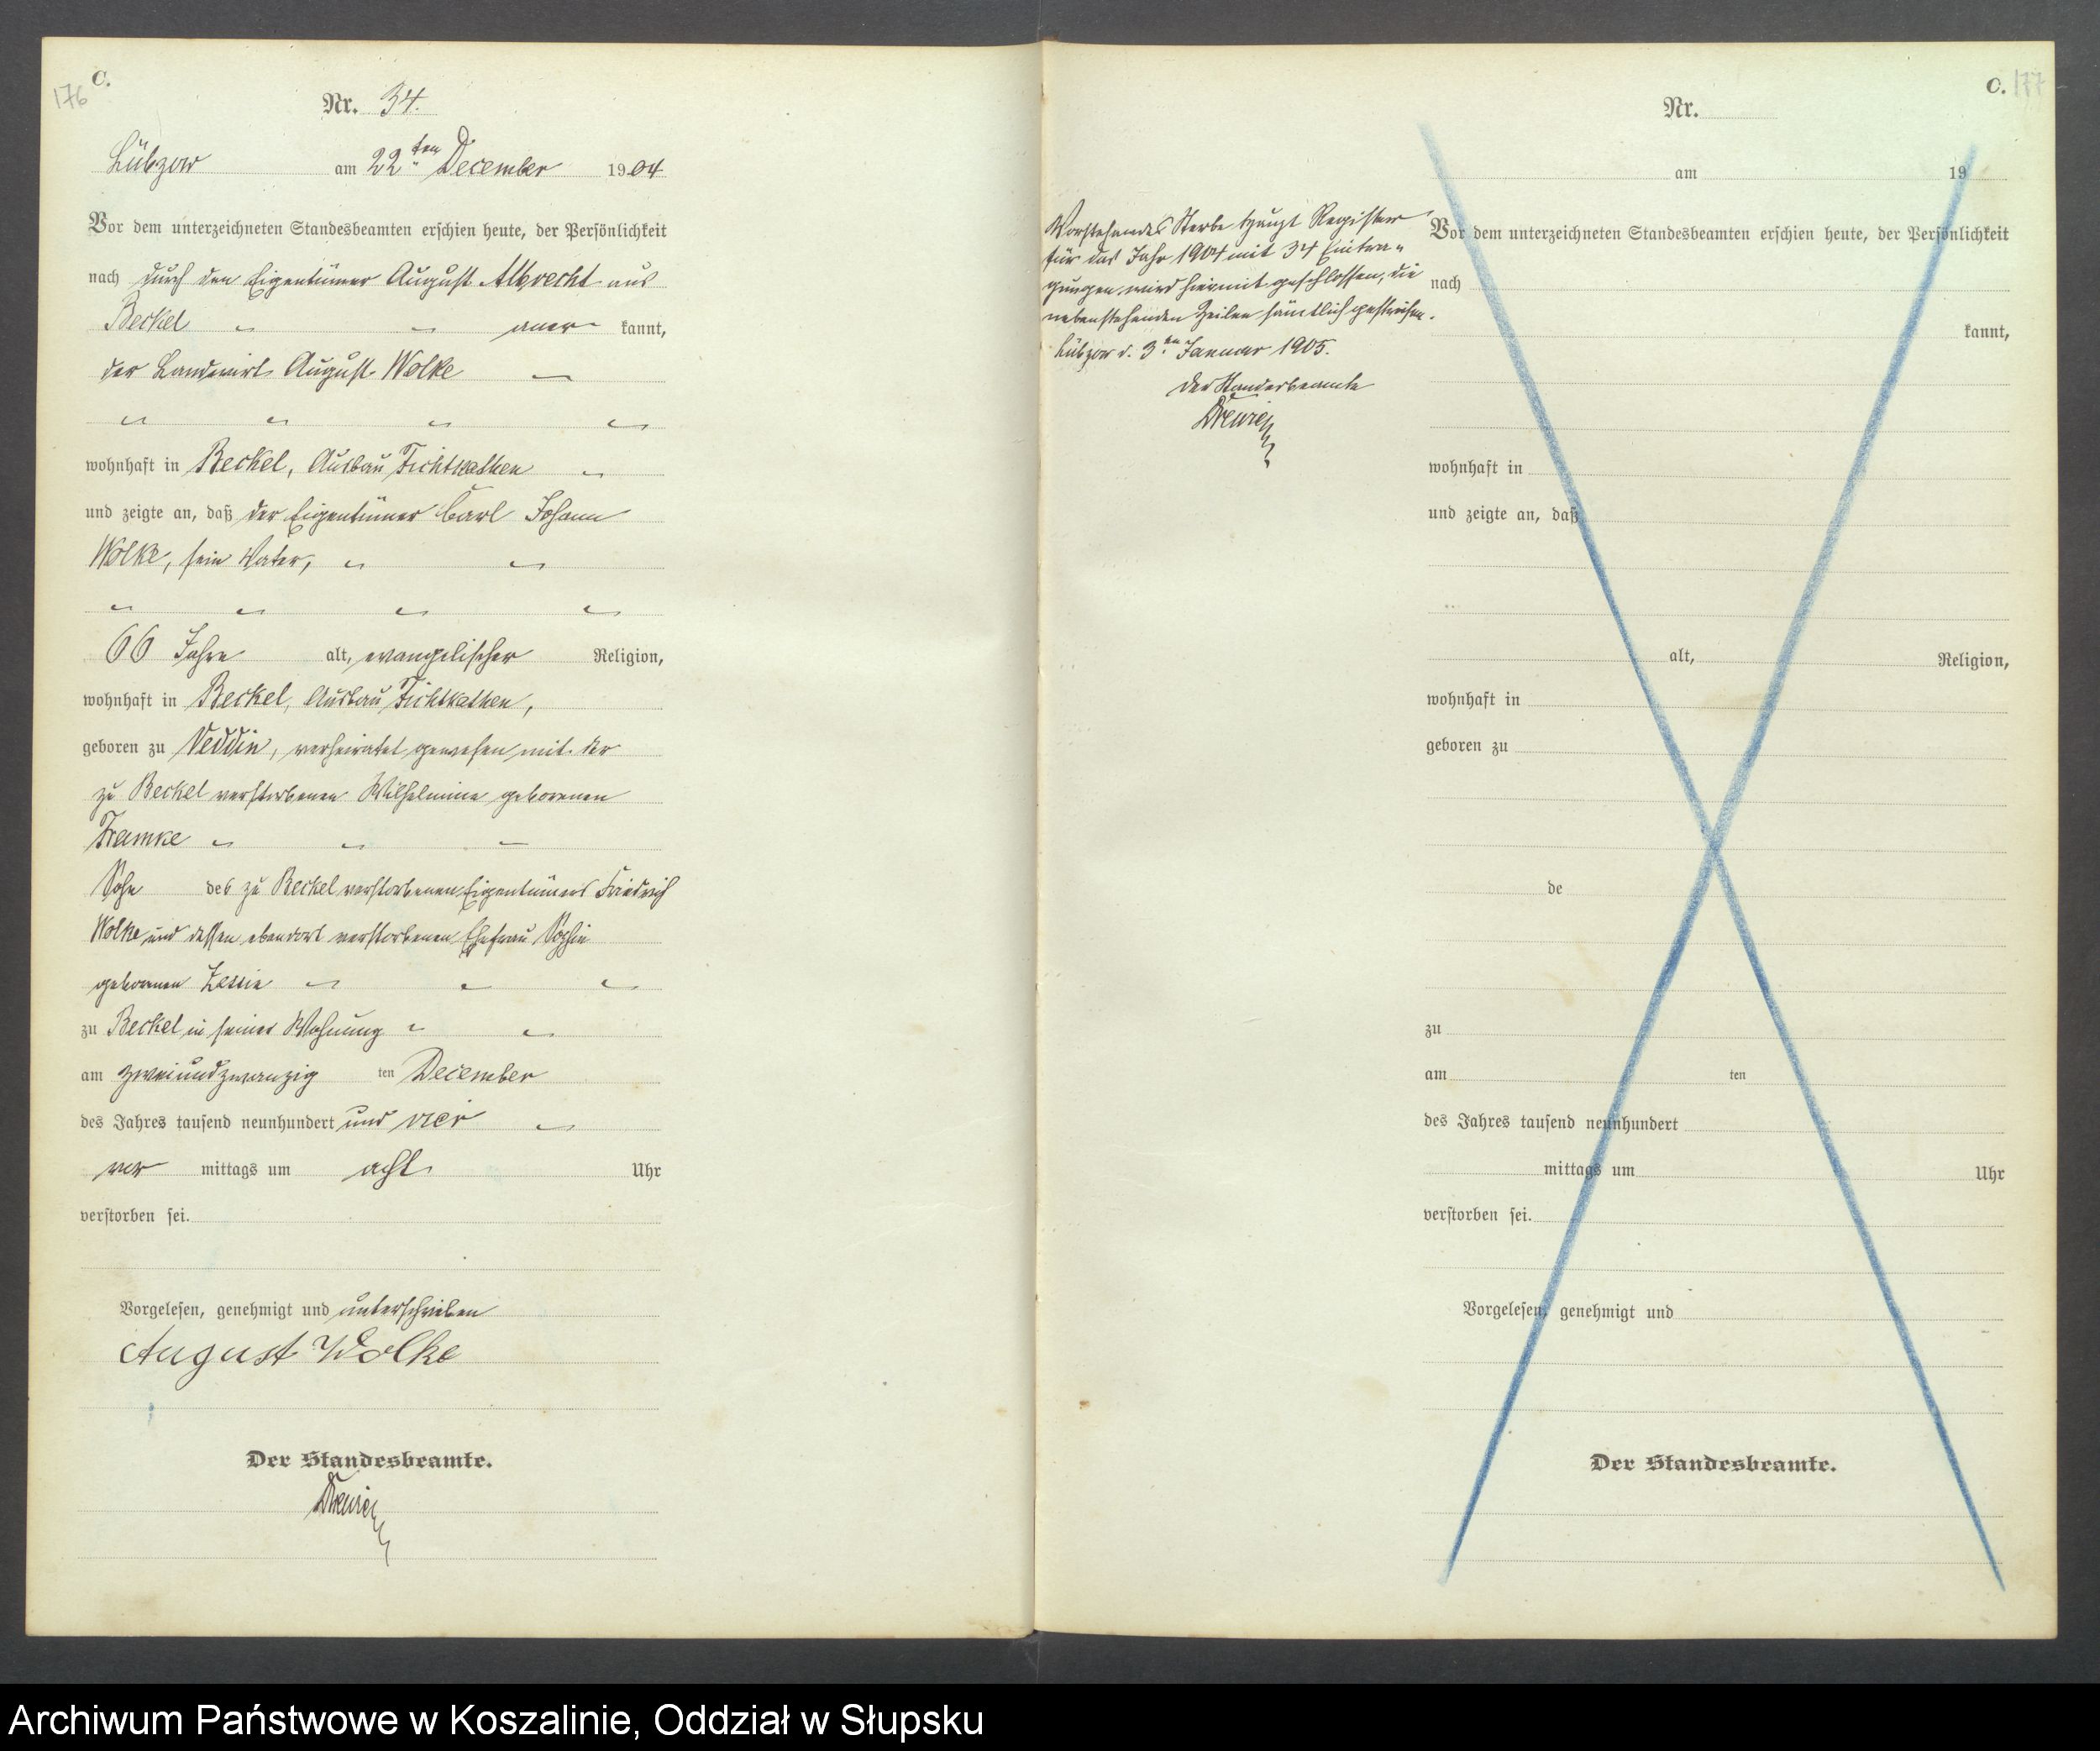 176
C.
Nr. 34.
Lübzow am 22ten December 1904
Vor dem unterzeichneten Standesbeamten erschien heute, der Persönlichkeit
nach durch den Eigentümer August Albrecht aus
Beckel aner kannt,
der Landwirt August Wolke
wohnhaft in Beckel, Ausbau Fichtkathen
und zeigte an, daß der Eigentümer Carl Johann
Wolke, sein Vater,
66 Jahre alt, evangelischer Religion,
wohnhaft in Beckel, Ausbau Fichtkathen,
geboren zu Veddin, verheiratet gewesen mit der
zu Beckel verstorbenen Wilhelmine geborenen
Framke
Sohn des zu Beckel verstorbenen Eigentümers Friedrich
Wolke und dessen ebendort verstorbenen Ehefrau Sophie
geborenen
zu Beckel in seiner Wohnung
am zweiundzwanzig ten December
des Jahres tausend neunhundert und vier
vor mittags um acht Uhr
verstorben sei.
Vorgelesen, genehmigt und unterschrieben
August Wolke
Der Standesbeamte.
C. 177
Nr.
am 19
Vorstehendes Sterbe Haupt Register
für das Jahr 1904 mit 34 Eintra-
gungen wird hiermit geschlossen, die
nebenstehenden Zeilen sämtlich gestrichen.
Lübzow d. 3ten Januar 1905.
Der Standesbeamte
Vor dem unterzeichneten Standesbeamten erschien heute, der Persönlichkeit
nach
kannt,
wohnhaft in
und zeigte an, daß
alt, Religion,
wohnhaft in
geboren zu
de
zu
am ten
des Jahres tausend neunhundert
mittags um Uhr
verstorben sei.
Vorgelesen, genehmigt und
Der Standesbeamte.
Archiwum Państwowe w Koszalinie, Oddział w Słupsku